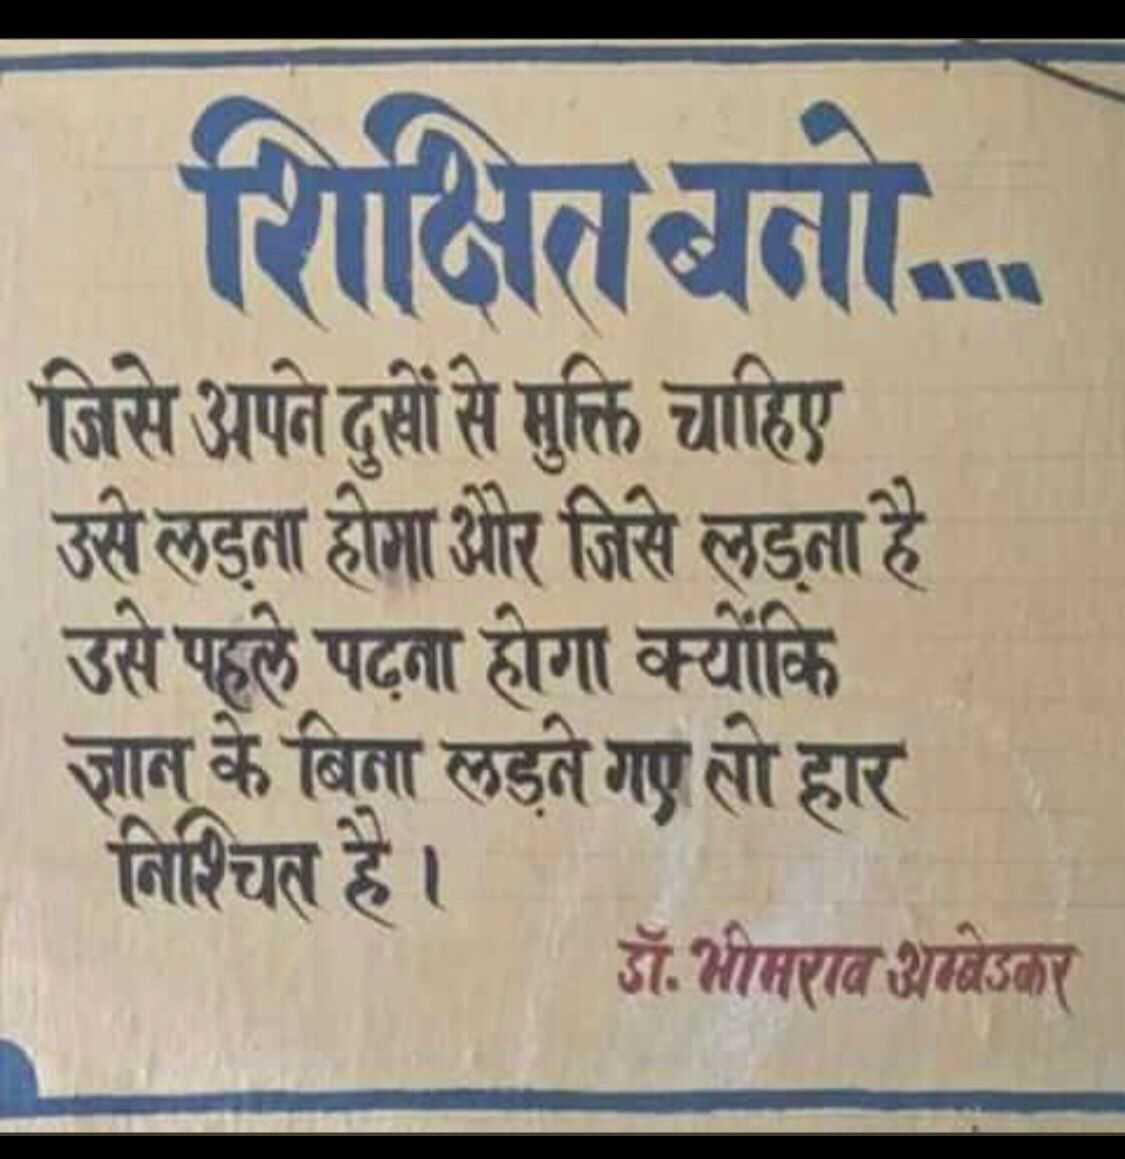 शिक्षित बनो...
जिसे अपने दुखों से मुक्ति चाहिए
उसे लड़ना होगा और जिसे लड़ना है
उसे पहले पढ़ना होगा क्योंकि
ज्ञान के बिना लड़ने गए तो हार
निश्चित है।
डॉ. भीमराव अम्बेडकर